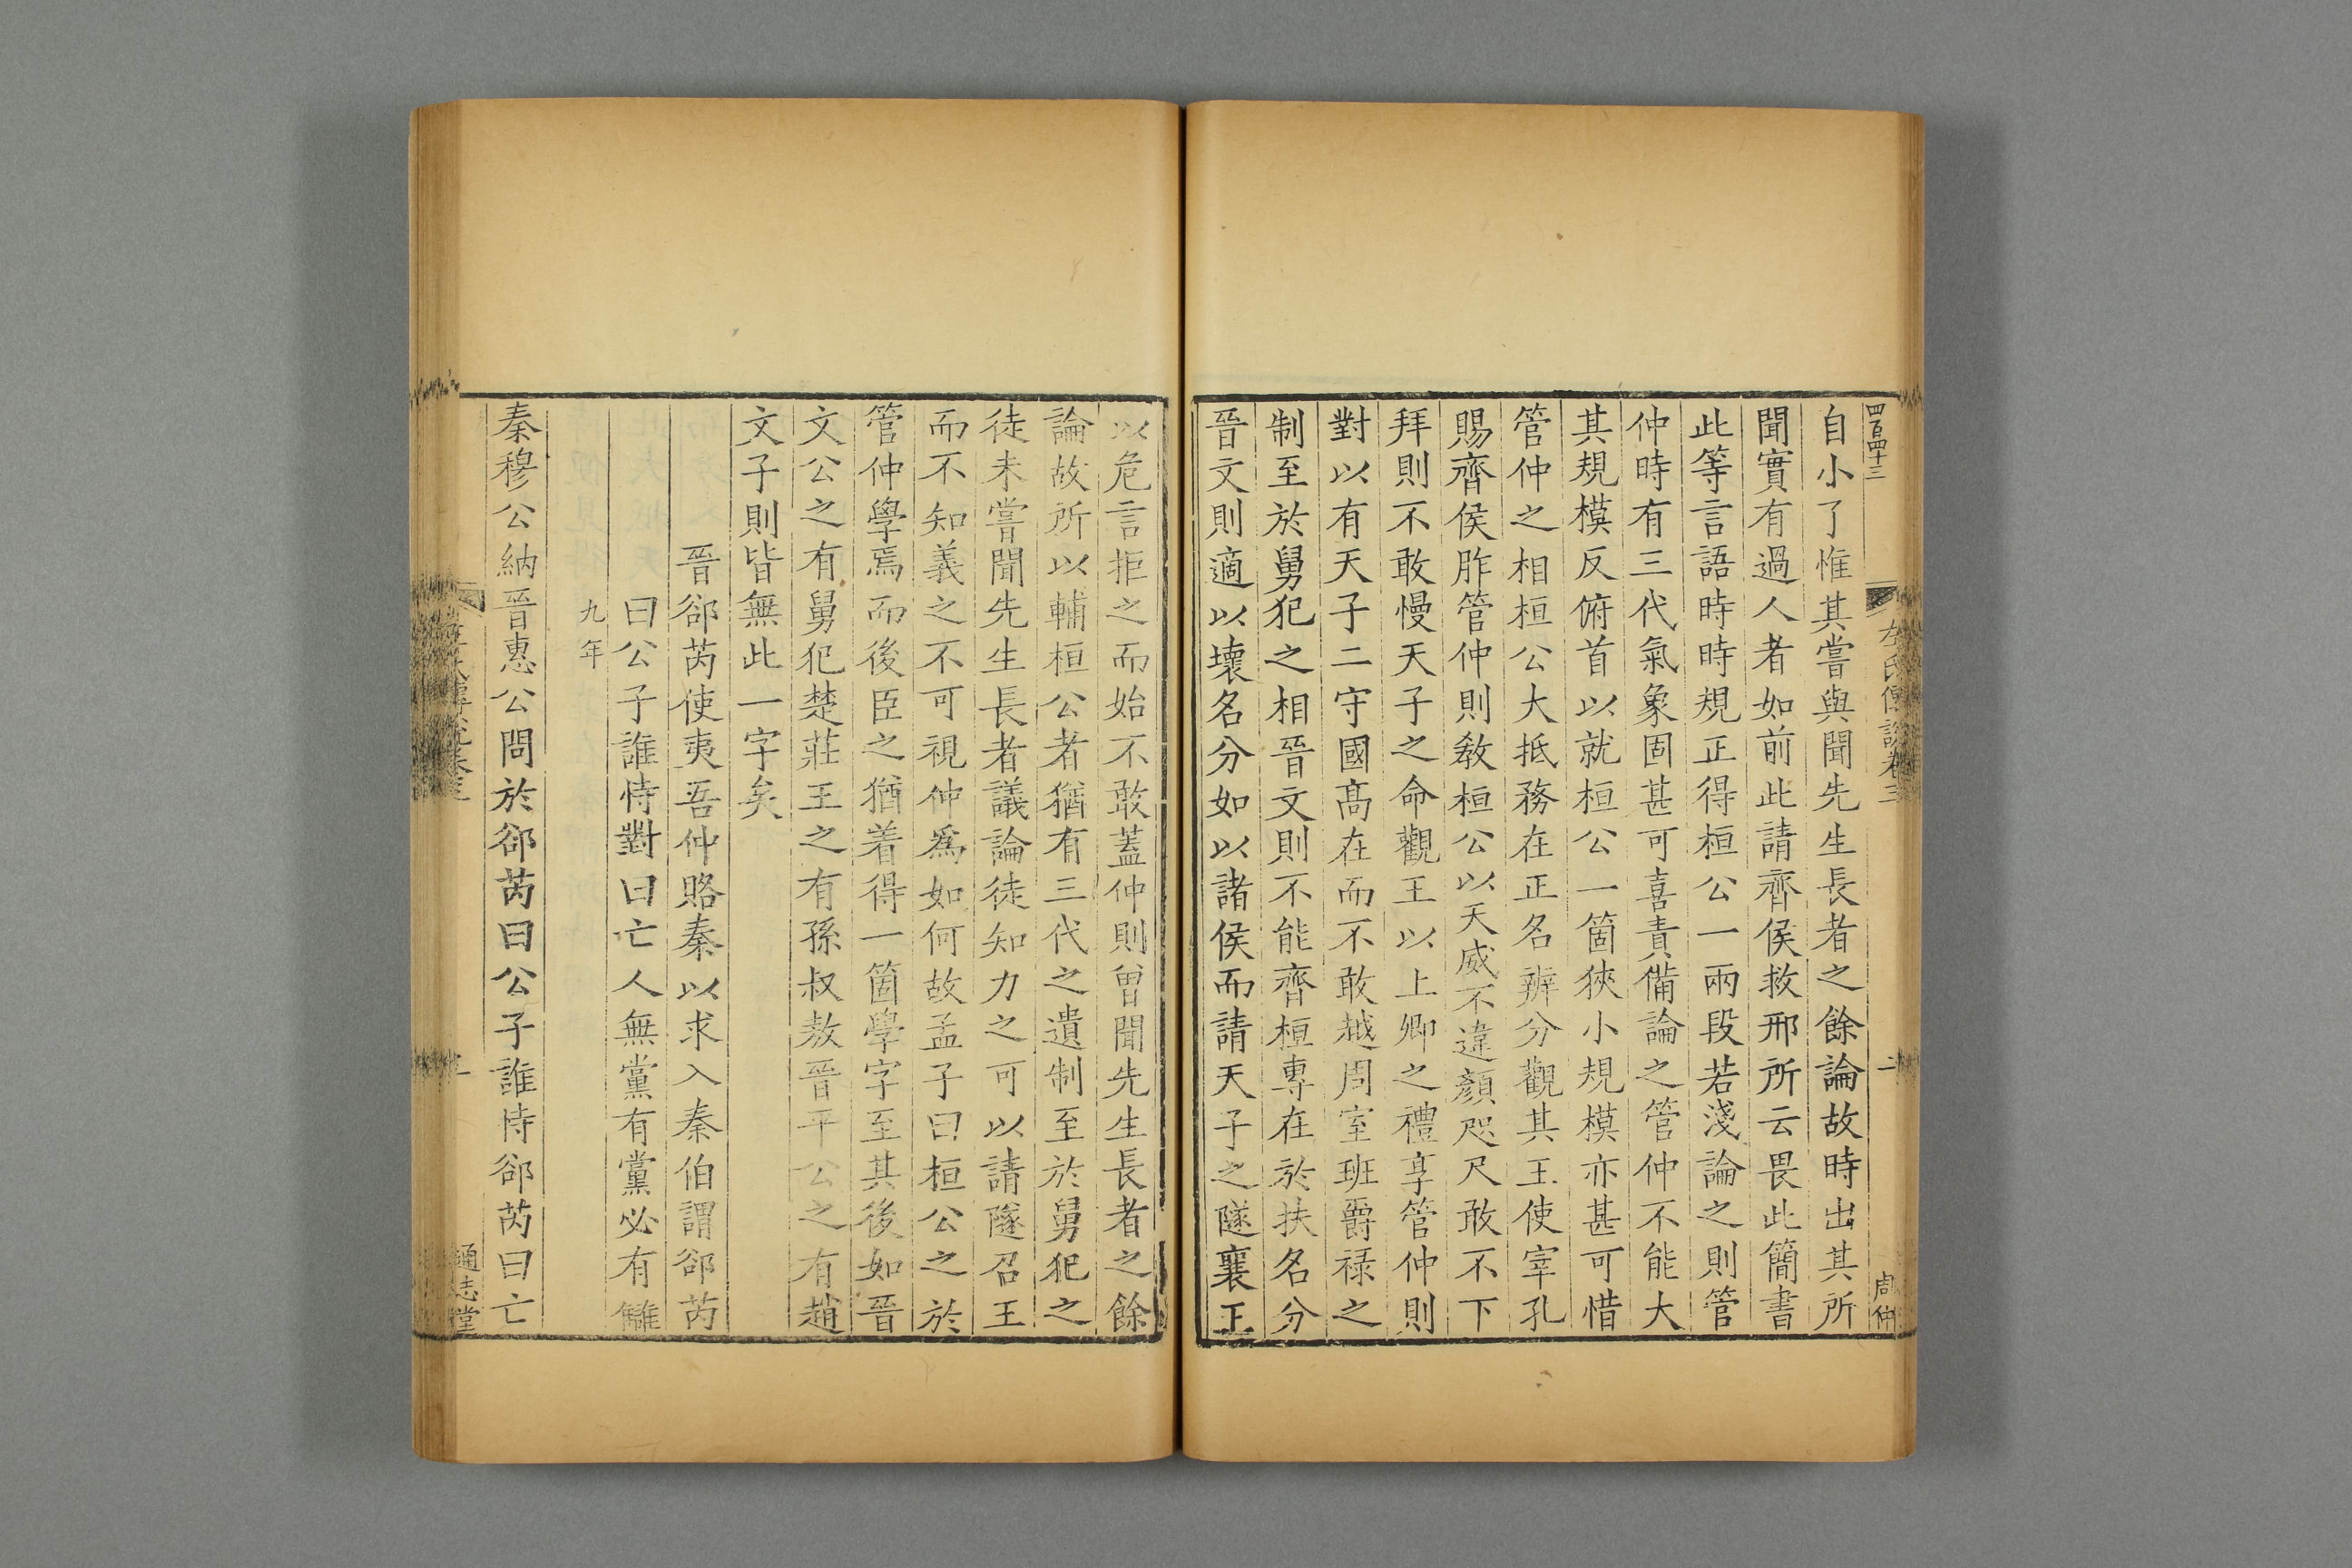 四百四十三
左氏傳說卷三
二
周仲
自小了惟其嘗與聞先生長者之餘論故時出其所
聞實有過人者如前此請齊侯救邢所云畏此簡書
此等言語時時規正得桓公一兩段若淺論之則管
仲時有三代氣象固甚可喜責備論之管仲不能大
其規模反俯首以就桓公一箇狹小規模亦甚可惜
管仲之相桓公大抵務在正名辨分觀其王使宰孔
賜齊侯胙管仲則敎桓公以天威不違顏咫尺敢不下
拜則不敢慢天子之命觀王以上卿之禮享管仲則
對以有天子二守國高在而不敢越周室班爵祿之
制至於舅犯之相晉文則不能齊桓專在於扶名分
晉文則適以壞名分如以諸侯而請天子之隧襄王
以危言拒之而始不敢蓋仲則曾聞先生長者之餘
論故所以輔桓公者猶有三代之遺制至於舅犯之
徒未嘗聞先生長者議論徒知力之可以請隧召王
而不知義之不可視仲爲如何故孟子曰桓公之於
管仲學焉而後臣之猶着得一箇學字至其後如晉
文公之有舅犯楚莊王之有孫叔敖晉平公之有趙
文子則皆無此一字矣
晉郤芮使夷吾仲賂秦以求入秦伯謂郤芮
曰公子誰恃對曰亡人無黨有黨必有讎
九年
秦穆公納晉惠公問於郤芮曰公子誰恃郤芮曰亡
通志堂